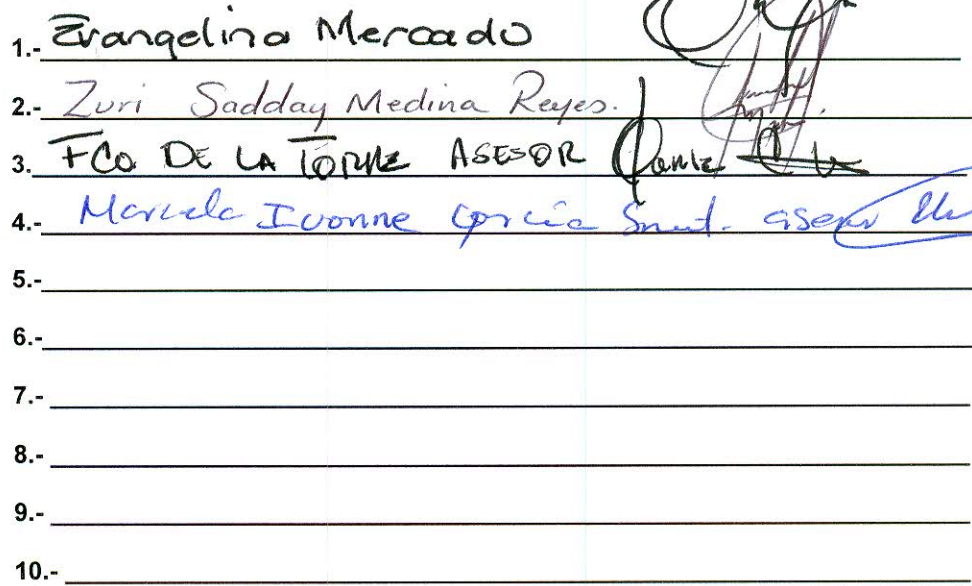 1.- Evangelina Mercado
2.- Zuri Sadday Medina Reyes.
3. FCO DE LA TORRE ASESOR
4.- Marcela Ivonne García asesor
5.-
6.-
7.-
8.-
9.-
10.-